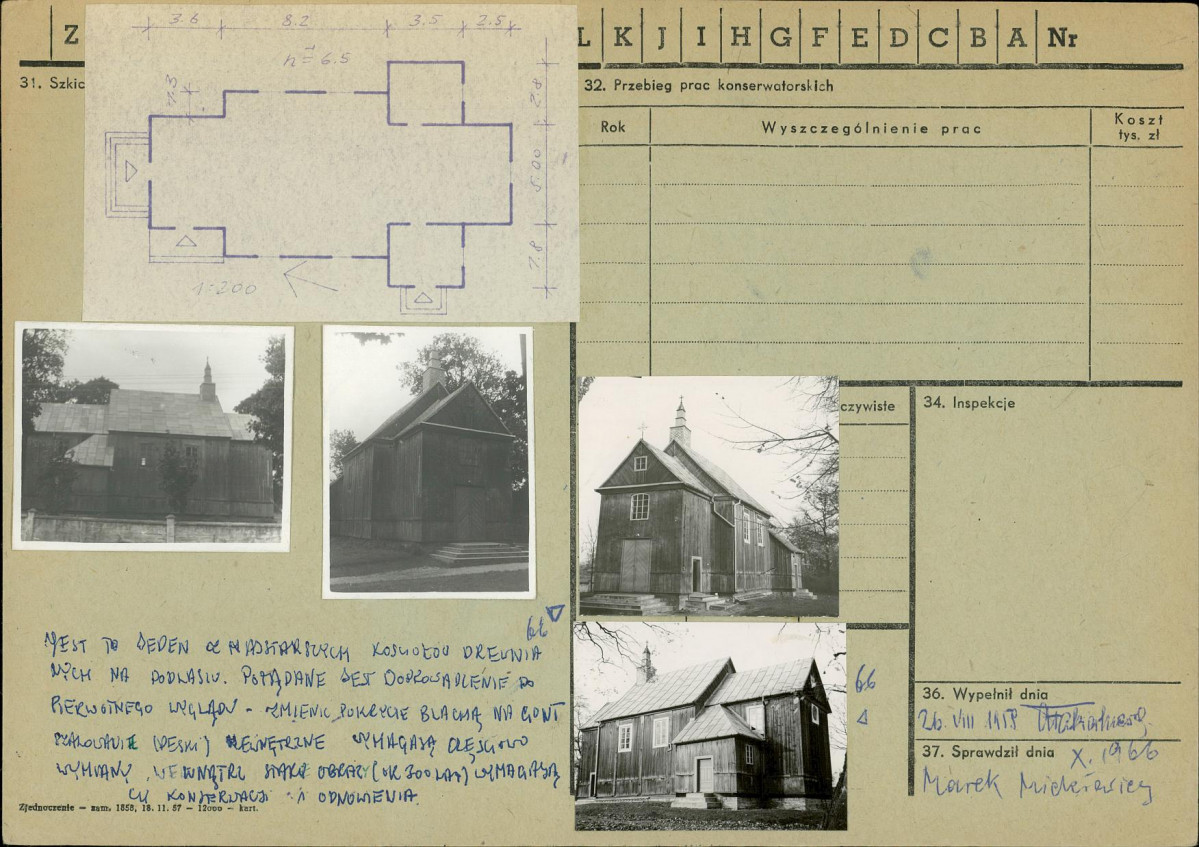 Z
L K J I H G F E D C B A Nr
31. Szkic
3.6 8.2 3.5 2.5
h = 6.5
7.3
2.8
5.00
2.8
1=200
32. Przebieg prac konserwatorskich
Rok Wyszczególnienie prac Koszt
tys. zł
czywiste
34. Inspekcje
66
JEST TO JEDEN Z NAJSTARSZYCH KOŚCIOŁÓW DREWNIA
NYCH NA PODLASIU. POŻĄDANE JEST DOPROWADZENIE DO
PIERWOTNEGO WYGLĄDU - ZMIENIĆ POKRYCIE BLACHĄ NA GONT
SZALOWANIE (DESKI) ZEWNĘTRZNE WYMAGAJĄ CZĘŚCIOWO
WYMIANY, WEWNĄTRZ STARE OBRAZY (OK 300 LAT) WYMAGAJĄ
CE KONSERWACJI I ODNOWIENIA.
66
36. Wypełnił dnia
26. VIII 1959
37. Sprawdził dnia X. 1966
Marek Mickiewicz
Zjednoczenie – zam. 1858, 18. 11. 57 – 12000 – kart.